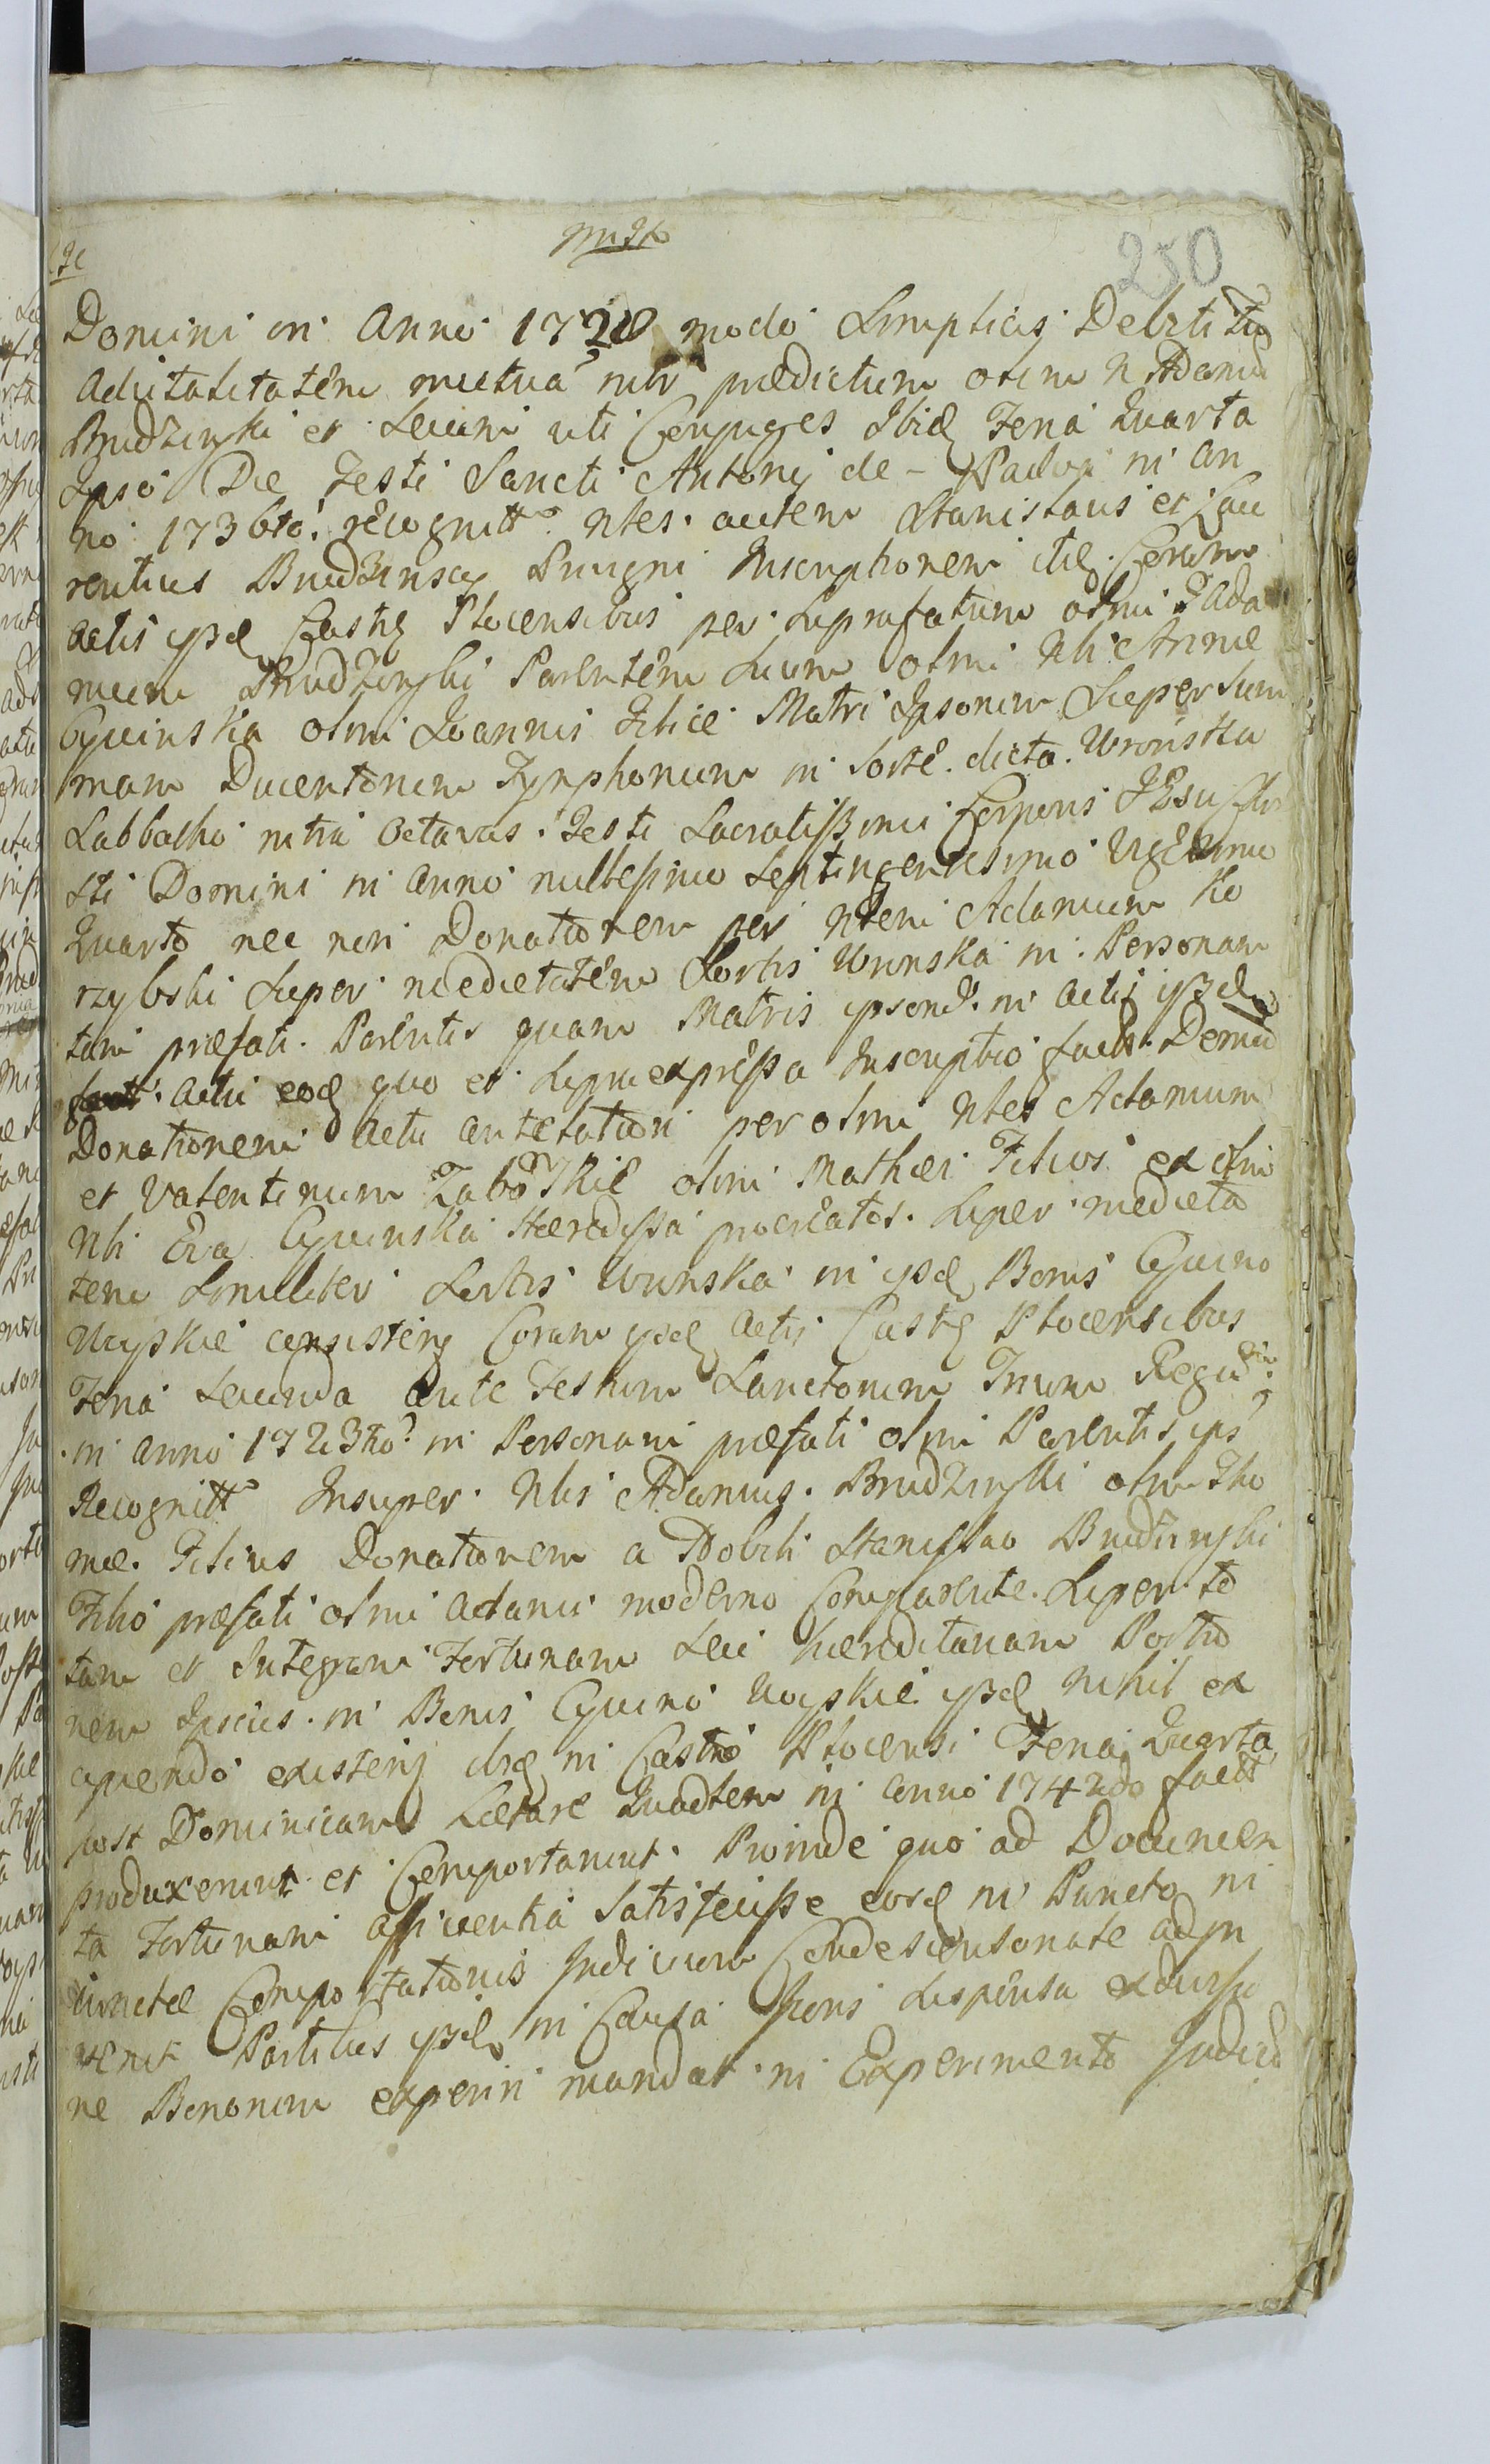 250
Domini in Anno 1728 modo Simplicis Debiti
advitalitatem mutuã intr prædictum olim N Adamũ
Brudzinski et Secum uti Conjuges Ibid Feria Quarta
Ipso Die Festi Sancti Antonij de Padva in An
no 1736to recognitt. Nles autem Stanislaus et Lau
rentius Brudzinscy Privigni Inscriptionem itid Coram
actis ijsd Castr Plocensibus per supra fatum olim Ada
mum Brudzinski Parentem suum olim Nli Annæ
Gywinska olim Joannis Filiæ Matri Ipsorum Super Sum
mam Ducentorum Tynphonum in Sorte dicta Wronska
Sabbatho intra Octavas Festi Sacratissimi Corporis JEsu Chri
sti Domini in Anno millesimo Septingentesimo Vigesimo
Quarto nec non Donationem per Nlem Adamum Ko
rzybski Super medietatem Sortis Wronska in Personam
tam præfati Parentis quam Matris ipsorum in actis ijsd
actu eod quo et supra expressa Inscriptio fact. Demũ
Donationem actu antelatiori per olim Nles Adamum
et Valentinum olim Mathæi Filios ex olim
Nli Eva Gywinska Hæredissa procreatos Super medieta
tem Simuliter Sortis Wronska in ijsd Bonis Gywino
Woyskie consisten Coram ijsd Actis Castr Plocensibus
Feria Secunda Ante Festum Sanctorum Trium Regum
in Anno 1723tio in Personam præfati olim Parentis ips
Recognitt Insuper Nlis Adamus Brudzinski olim Tho
mæ Filius Donationem a Nobili Stanislao Brudzinski
Filio præfati olim Adami moderno Comparente Super to
tam et Integram Fortunam sui hæreditariam Portio
nem Ipsius in Bonis Gywino Woyskie ijsd nihil ex
cipiendo existen ibid in Castro Plocensi Feria Quarta
post Dominicam Lætare Quadlem in Anno 1742do factt
produxerunt et Comportarunt. Proinde quo ad Documen
ta Fortunam afficientia Satisfecisse eosd in Puncto in
iunctæ Comportationis Judicium Condescensionale adin
venit Partibus ijsd in Causa Fori Suspensa exdivisio
ne Bonorum experiri mandat in Experimento Judiciũ